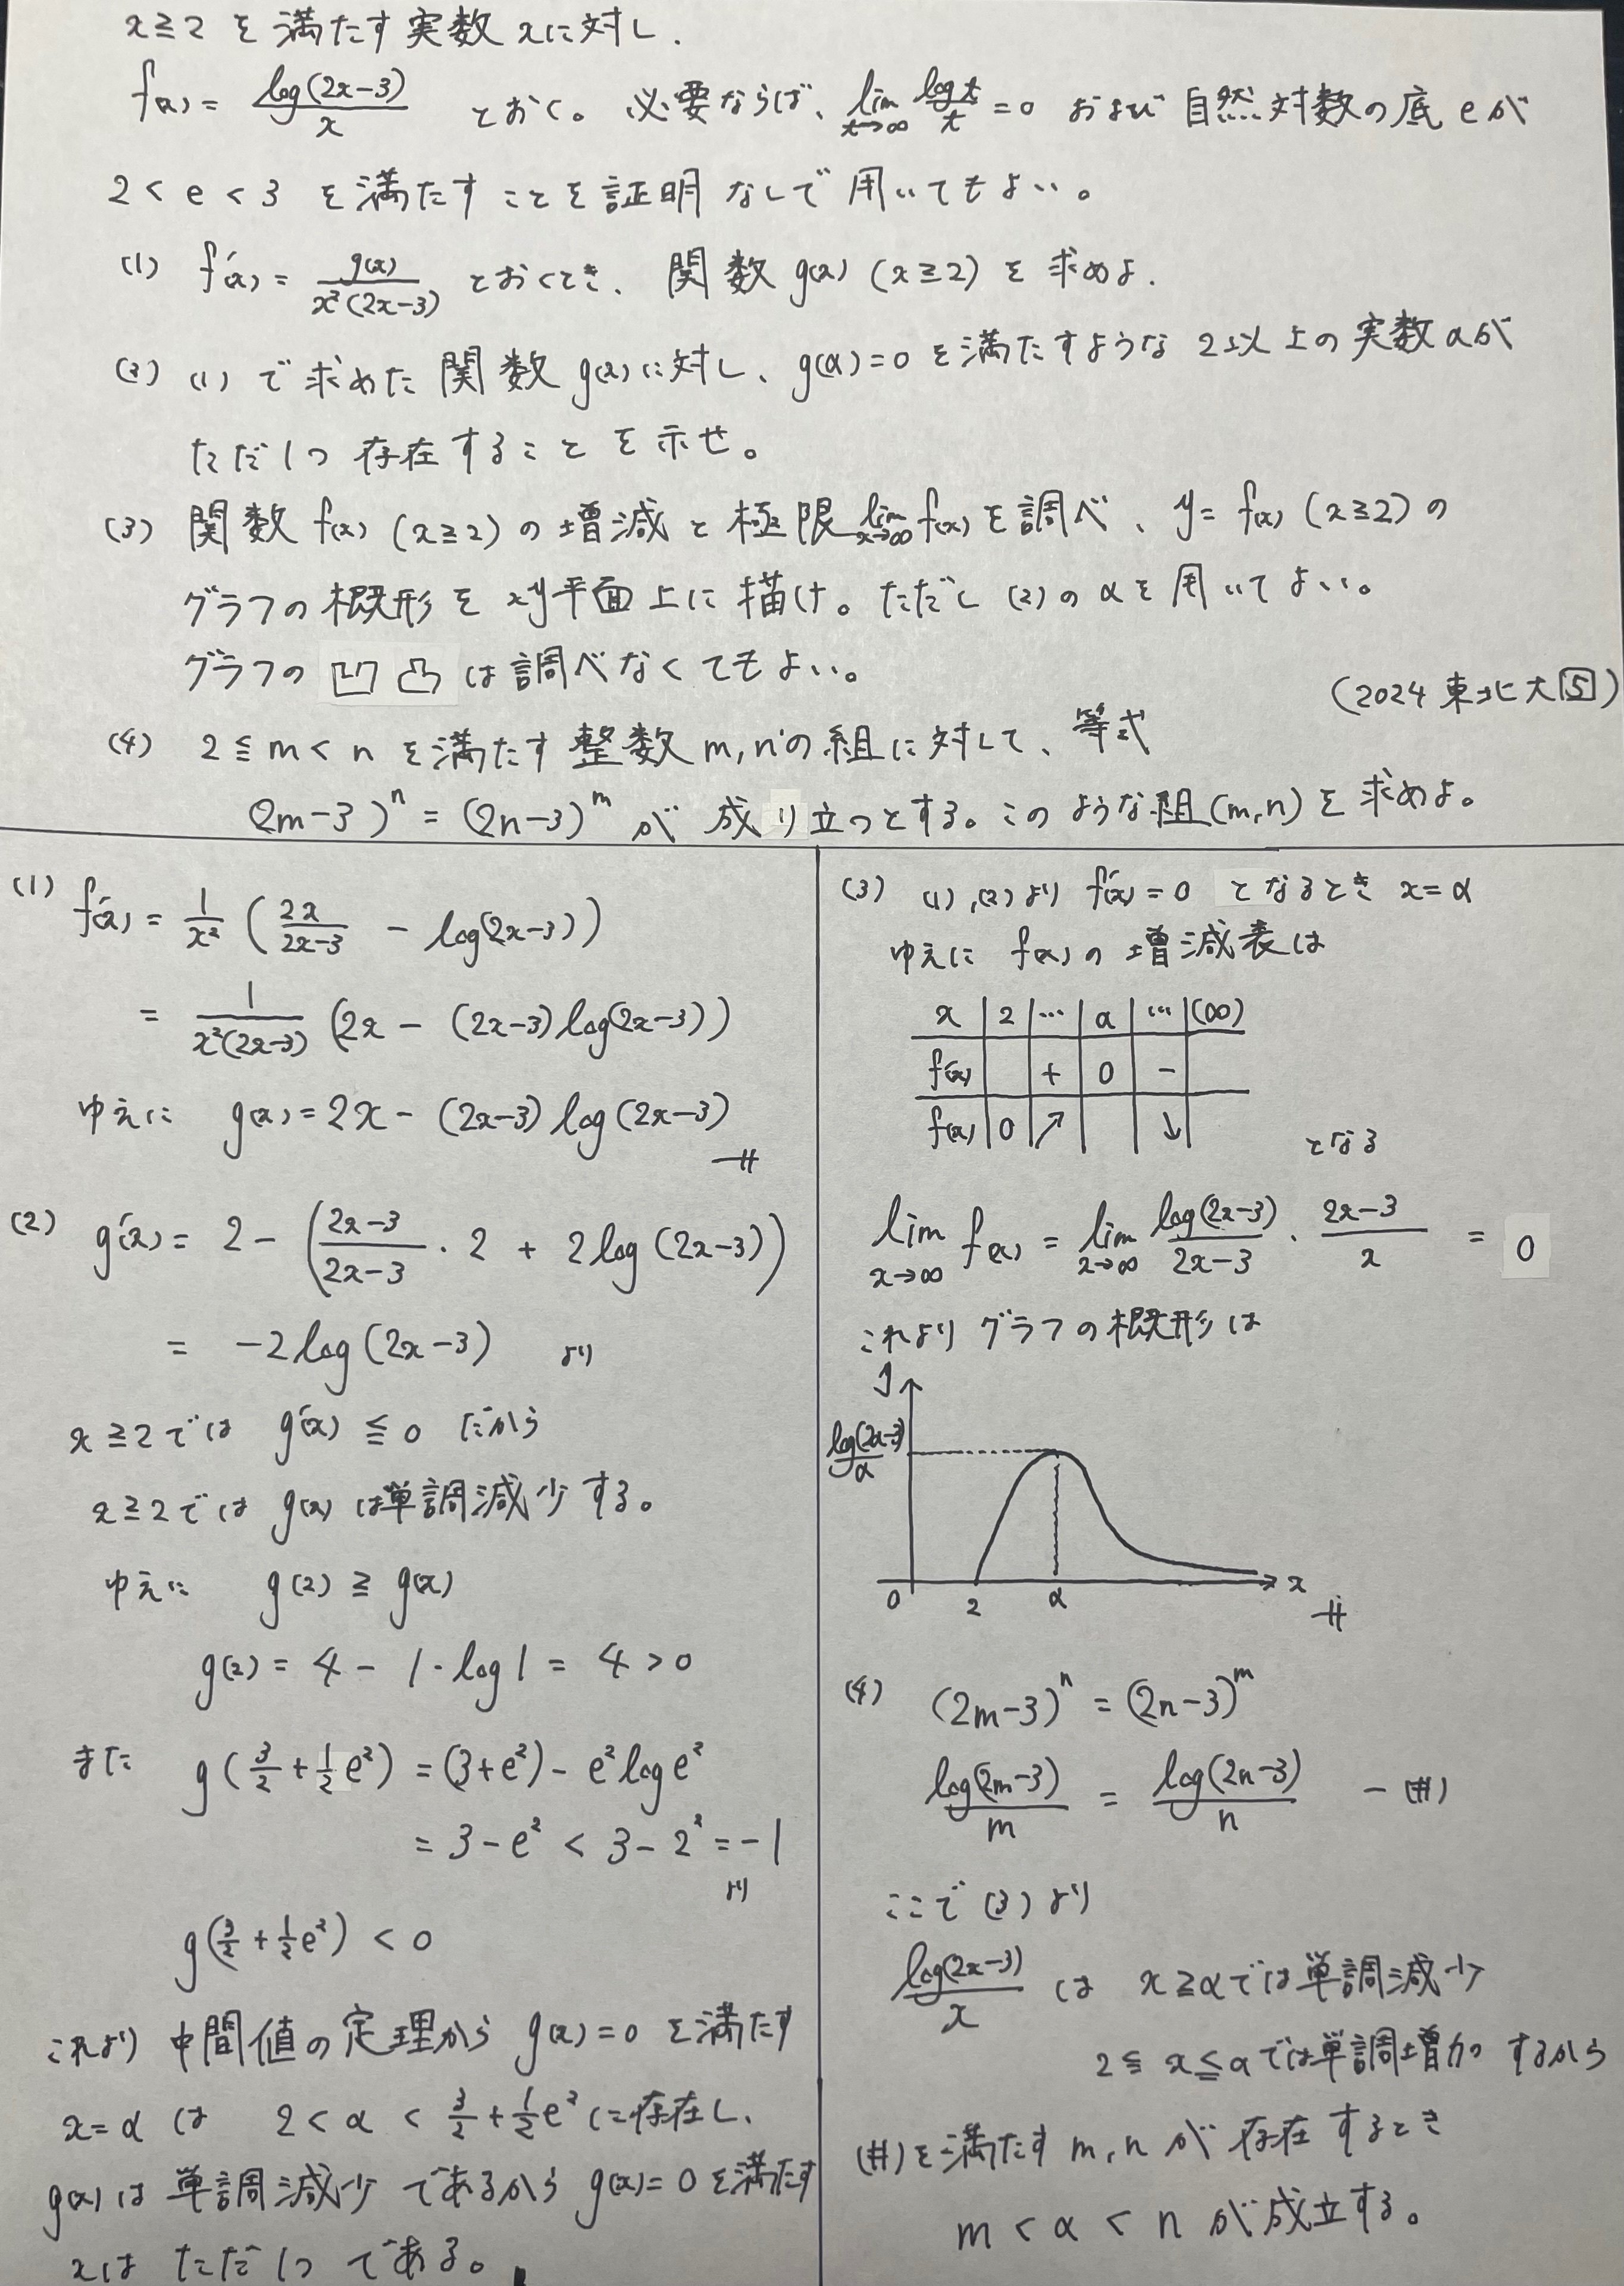 x≧2 を満たす実数 xに対し.
f(x) = log(2x-3)/x とおく。必要ならば、lim_{t→∞} log t/t = 0 および 自然対数の底 e が
2 < e < 3 を満たすことを証明なしで用いてもよい。
(1) f'(x) = g(x)/x²(2x-3) とおくとき、関数 g(x) (x≧2) を求めよ.
(2) (1) で求めた関数 g(x) に対し、g(α)=0 を満たすような 2以上の実数αが
ただ1つ存在することを示せ。
(3) 関数 f(x) (x≧2) の増減と極限 lim_{x→∞} f(x) を調べ、y= f(x) (x≧2) の
グラフの概形を xy平面上に描け。ただし (2)の αを用いてよい。
グラフの 凹凸 は調べなくてもよい。
(2024 東北大 5)
(4) 2≦m<n を満たす整数 m,n の組に対して、等式
(2m-3)^n = (2n-3)^m が 成り立つとする。このような組(m,n)を求めよ。
(1) f'(x) = 1/x² ( 2x/(2x-3) - log(2x-3) )
= 1/x²(2x-3) (2x - (2x-3)log(2x-3))
ゆえに g(x) = 2x - (2x-3) log(2x-3)
(2) g'(x) = 2 - ( (2x-3)/(2x-3) ・ 2 + 2log(2x-3) )
= -2log(2x-3) より
x≧2では g'(x) ≦ 0 だから
x≧2では g(x) は単調減少する。
ゆえに g(2) ≧ g(x)
g(2) = 4 - 1・log1 = 4 > 0
また g(3/2 + 1/2 e²) = (3+e²) - e² log e²
= 3 - e² < 3 - 2² = -1
より
g(3/2 + 1/2 e²) < 0
これより 中間値の定理から g(x)=0 を満たす
x=α は 2 < α < 3/2 + 1/2 e² に存在し、
g(x) は 単調減少であるから g(x)=0 を満たす
xは ただ1つ である。
(3) (1),(2)より f'(x)=0 となるとき x=α
ゆえに f(x) の増減表は
x 2 … α … (∞)
f'(x) + 0 -
f(x) 0 ↗ ↘
となる
lim_{x→∞} f(x) = lim_{x→∞} log(2x-3)/(2x-3) ・ (2x-3)/x = 0
これより グラフの概形は
y
log(2α-3)/α
0 2 α x
(4) (2m-3)^n = (2n-3)^m
log(2m-3)/m = log(2n-3)/n - (#)
ここで (3)より
log(2x-3)/x は x≧αでは単調減少
2≦x≦αでは単調増加 するから
(#)を満たす m,n が 存在するとき
m < α < n が成立する。